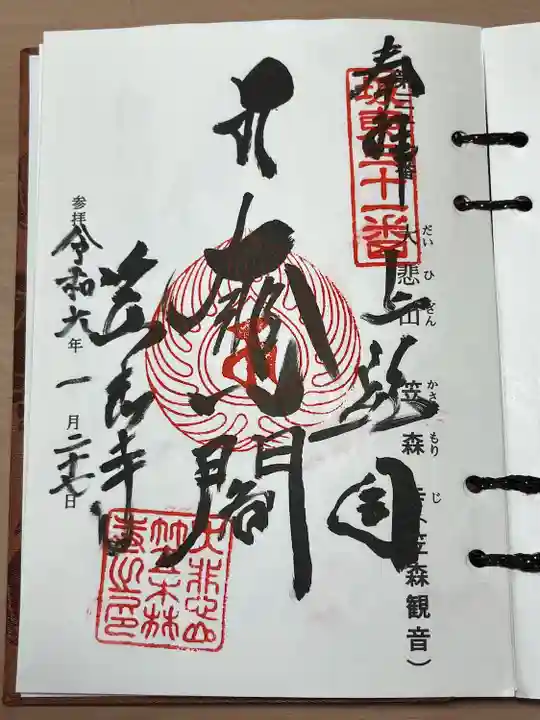 奉拝
坂東三十一番
大悲山 笠森寺(笠森観音)
だい ひ ざん かさ もり じ
上総国
大悲閣
笠森寺
参拝 令和六年一月二十七日
大悲山
笠森
寺之印